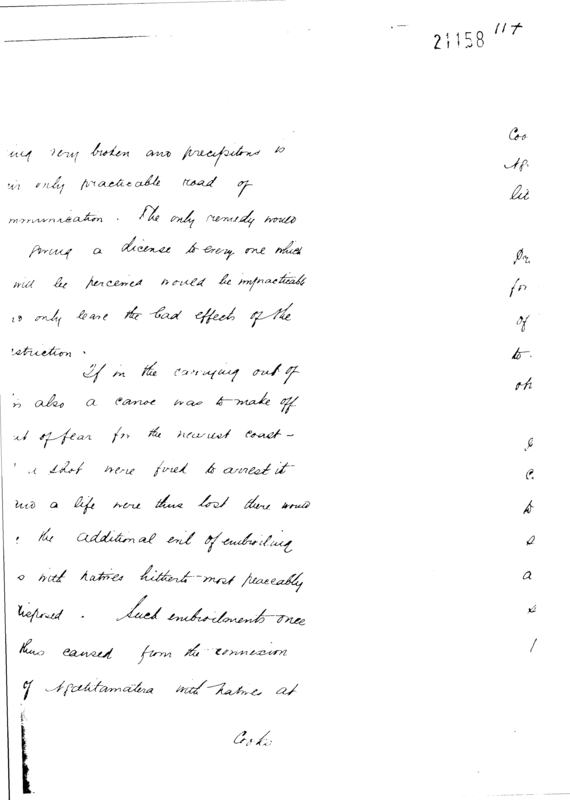 21158 117
ing very broken and precipitous is
only practicable road of
mmunication. The only remedy would
giving a license to every one which
will be perceived would be impracticable
only leave the bad effects of the
striction.
If in the carrying out of
is also a canoe was to make off
ut of fear for the nearest coast -
a shot were fired to arrest it
and a life were thus lost there would
the additional evil of embroiling
s with natives hitherto most peaceably
disposed. Such embroilments once
thus caused from the connexion
of Ngatitamatera with natives at
Cooks
Coo
Ng.
lit
Dr.
for
of
to.
oh
C.
a